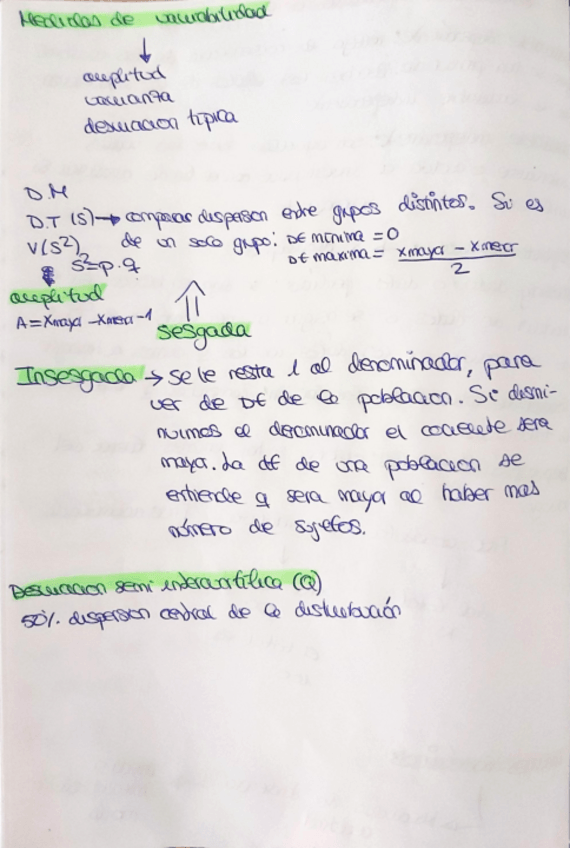 Medidas de variabilidad
↓
amplitud
varianza
desviacion tipica
D.M
D.T (S) → comparar dispersion entre grupos distintos. Si es
V(S²) de un solo grupo: Dt minima = 0
S²=p.q Dt maxima = xmayor - xmenor / 2
amplitud
A = Xmayor - Xmenor - 1
sesgada
Insesgada → se le resta 1 al denominador, para
ver de Dt de la poblacion. Si dismi-
nuimos el denominador el cociente sera
mayor. La dt de una poblacion se
entiende q sera mayor al haber mas
número de sujetos.
Desviacion semi intercuartilica (Q)
50% dispersion central de la distribución